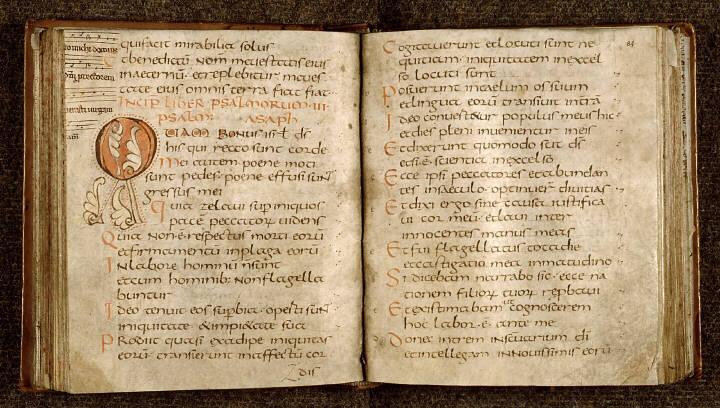 quifacit mirabilia solus
etbenedictũ Nom maiestatis eius
inaeternũ · et replebitur maies
tate eius omnis terra fiat fiat ·
INCIP LIBER PSALMORUM · III ·
PSALM ASAPH
QUAM BONUS isrl ds
his qui recto sunt corde
Mei autem poene moti
sunt pedes · poene effusi sunt
gressus mei
Quia zelavi sup iniquos
pacẽ peccatorũ videns
Quia non · e · respectus morti eorũ
et firmamentũ inplaga eorũ
IN labore hominũ nsunt
etcum hominib; Nonflagella
buntur
Ideo tenuit eos supbia · opeti sunt
iniquitate & impietate sua
Prodiit quasi exadipe iniquitas
eorũ transierunt inaffectũ cor
dis
84
Cogitaverunt etlocuti sunt ne
quitiam · iniquitatem inexcel
so locuti sunt
Posuerunt incaelum os suum
etlingua eorũ transivit intrã
Ideo convertetur populus meus hic ·
etdies pleni invenientur ineis
Et dixerunt quomodo scit ds
etsi · e · scientia inexcelso
Ecce ipsi peccatores et abundan
tes insaeculo · optinuer divitias
Et dixi ergo sine causa iustifica
vi cor meũ · etlavi inter
innocentes manus meas
Et fui flagellatus totadie
et castigatio mea inmatutino
Si dicebam narrabo sic · ecce na
tionem filiorũ tuorũ repbavi
Et existimabam ut cognoscerem
hoc labor · e · ante me
Donec intrem insctuarium di
etintellegam INNOvissimis eorũ